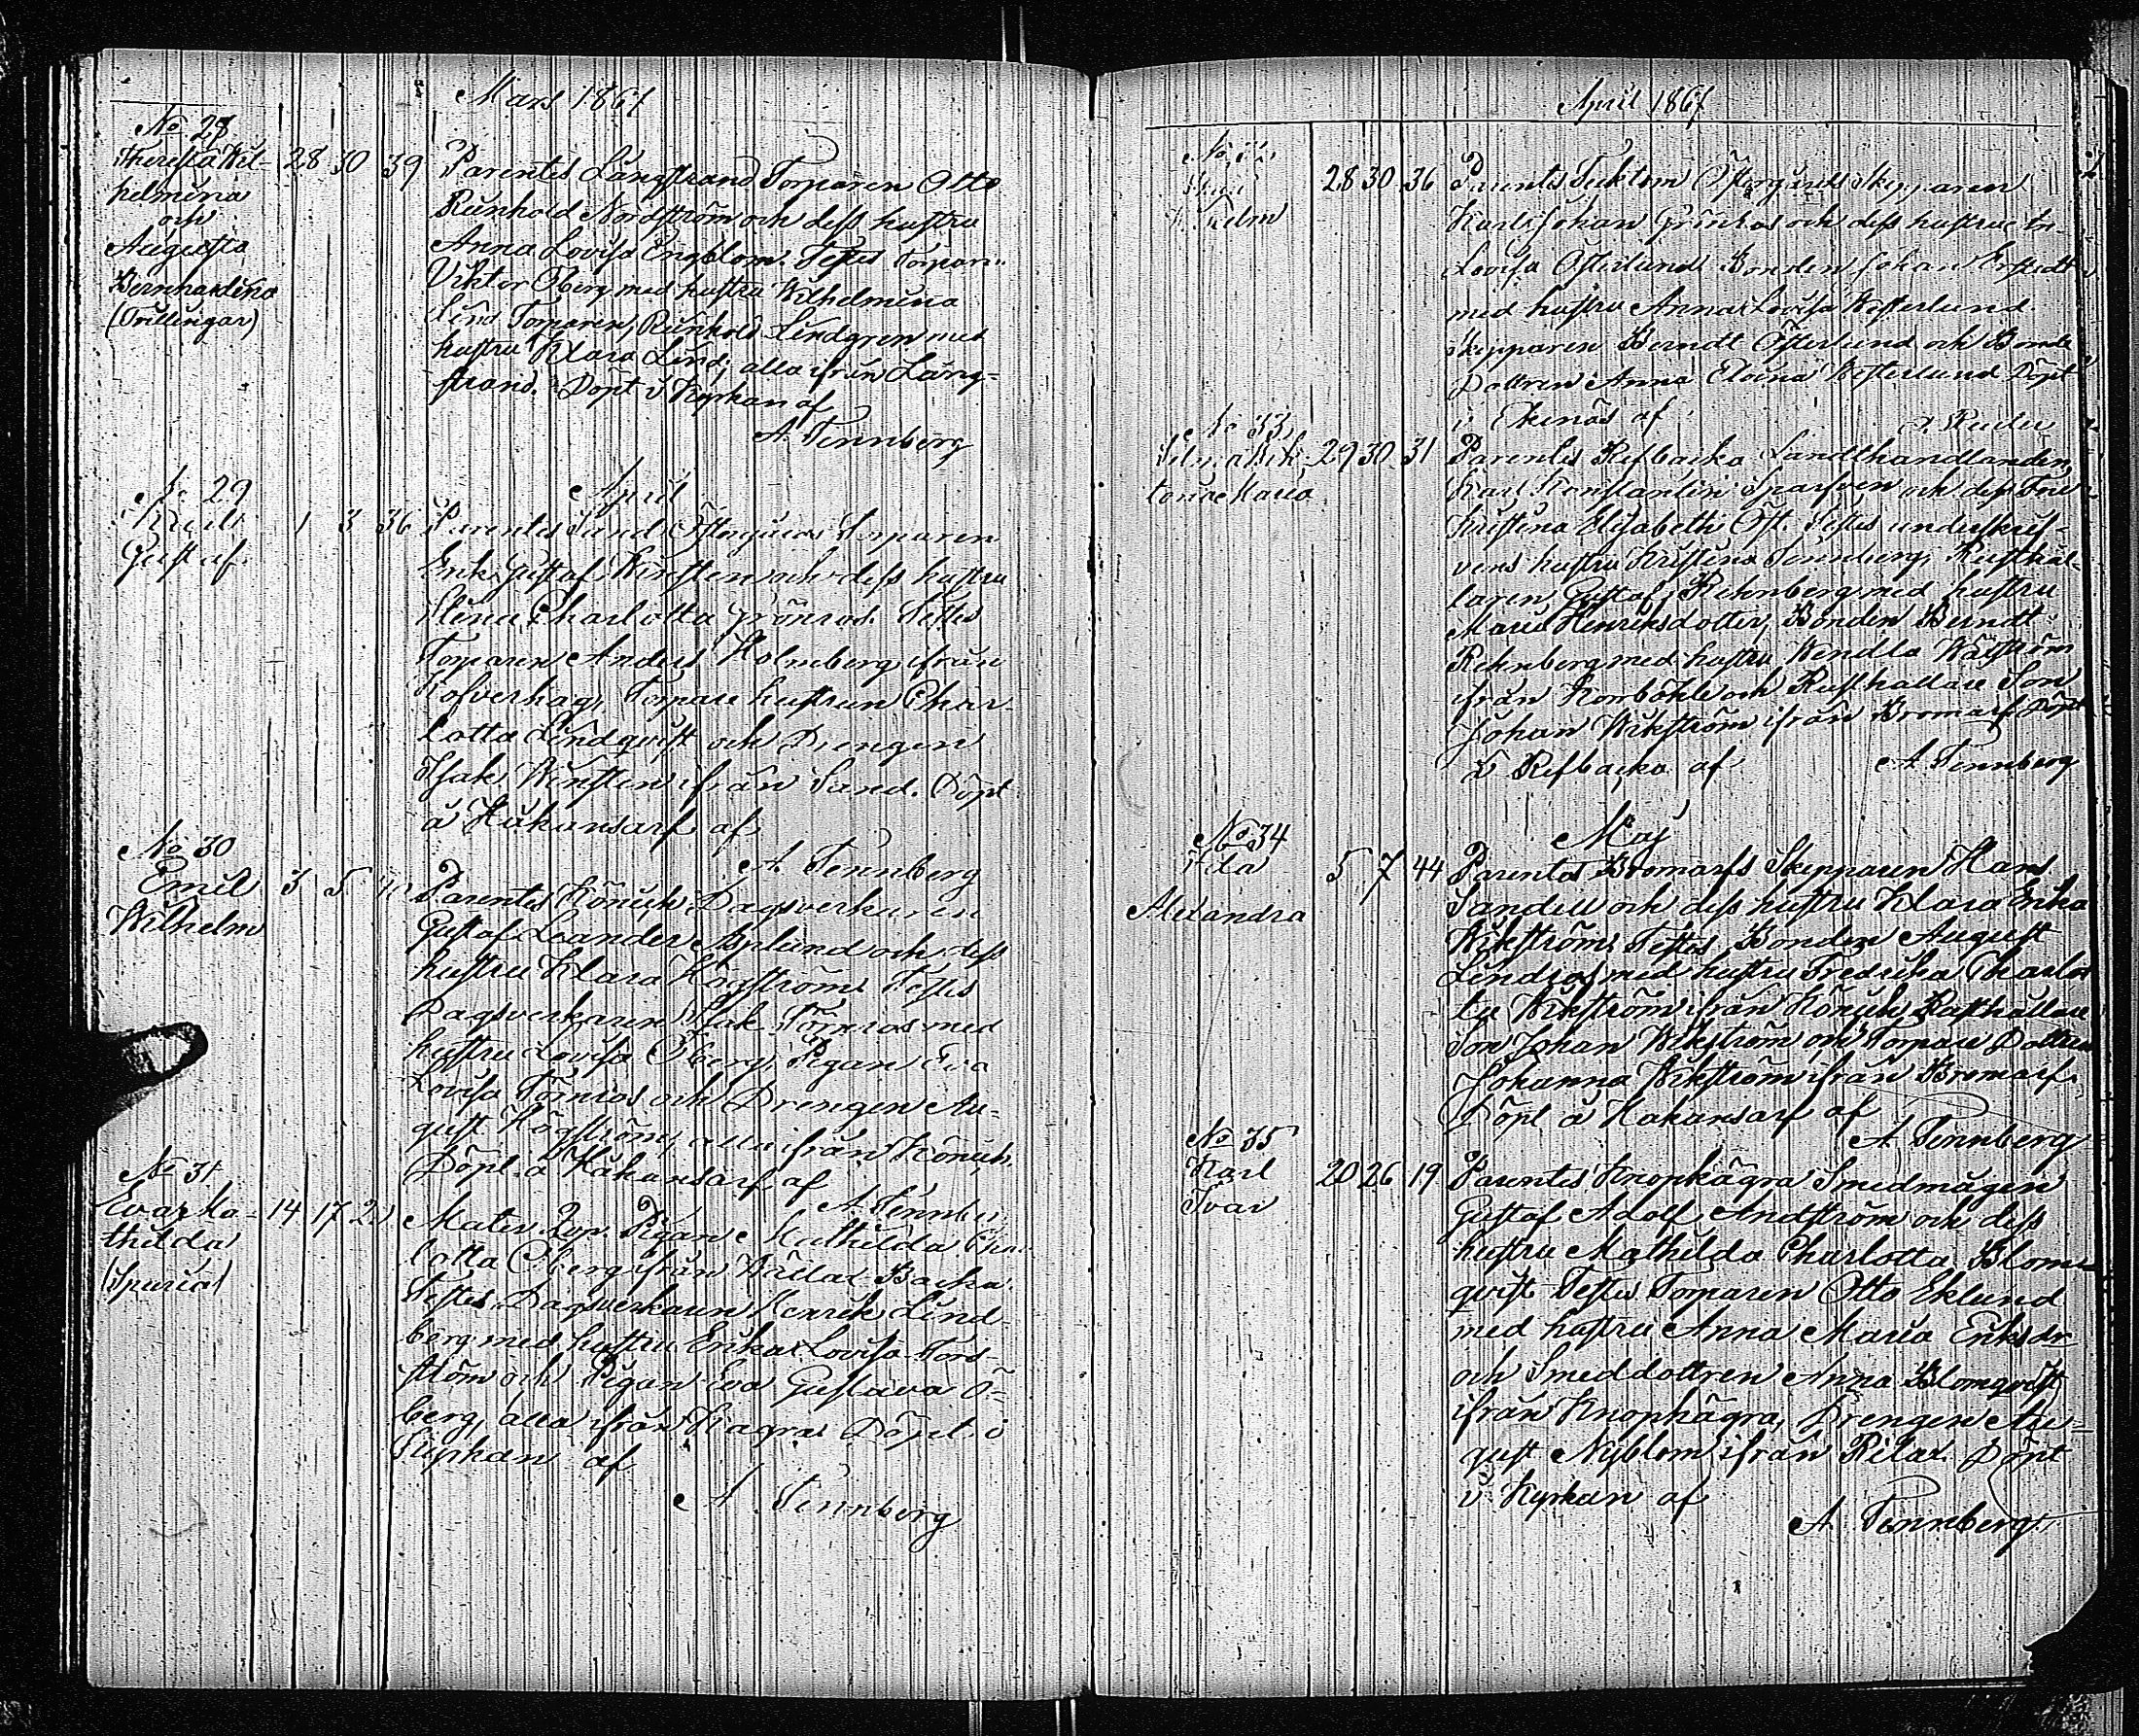 Mars 1867
No 28
Theresia Wil- 28 30 39 Parentes Långstrand Torparen Otto
helmina
och
Augusta
Bernhardina
(Tvillingar)
Reinhold Nordström och dess hustru
Anna Lovisa Engblom. Testes Torparn
Viktor Öberg med hustru Wilhelmina
Lind Torparen Reinhold Lindgren med
hustru Klara Lind, alla ifrån Lång-
strand. Döpt i Kyrkan af
A. Tennberg
No 29
April
Gustaf
1 3 36 Parentes Sand Torparen
Erik Gustaf och dess hustru
Charlotta Grönros. Testes
Torparen Anders Holmberg ifrån
Kofverhag, Torpare hustrun Char-
lotta Lindqvist och Drengen
Isak ifrån Sand. Döpt
å Håkansarf af
A. Tennberg
No 30
Emil 3 5 Parentes Dagsverkaren
Wilhelm
Gustaf Leander Asplund och dess
hustru Klara Högström. Testes
Dagsverkaren Isak Törnros med
hustru Lovisa Öberg, Pigan Eva
Lovisa Törnros och Drengen Au-
gust Högström, alla ifrån
Döpt å Håkansarf af
A. Tennberg
No 31
Eva Ma- 14 17 Mater Pigan Mathilda Char-
thilda
(Spuria)
lotta Öberg ifrån Backa.
Testes Dagsverkaren Henrik Lind-
berg med hustru Erika Lovisa Fors-
ström och Pigan Eva Gustava Ö-
berg, alla ifrån Döpt i
Kyrkan af
A. Tennberg
April 1867
No 32
28 30 36 Parentes Skepparen
Karl Johan Grönros och dess hustru
Lovisa Österlund Bonden Johan
med hustru Anna Lovisa Westerlund.
Skepparen Berndt Österlund och Bonde
Dottren Anna Elvina Westerlund Döpt
i Ekenäs af
No 33
29 30 31 Parentes Refbacka Landthandlanden
toria Maria
Karl Konstantin Sparfven och dess Fru
Kristina Elisabeth Öst. Testes underskrif-
vens hustru Kristina Tennberg, Rusthål-
laren Gustaf Rehnberg med hustru
Maria Henriksdotter, Bonden Berndt
Rehnberg med hustru Wendla
ifrån Norrböhle och Rusthållare Son
Johan Wikström ifrån Bromarf Döpt
i Refbacka af A. Tennberg
Maj
No 34
5 7 44 Parentes Bromarfs Skepparen Hans
Alexandra
Sandell och dess hustru Klara Erika
Wikström. Testes Bonden August
Lindros med hustru Fredrika Charlot
ta Wikström ifrån Rusthållare
Son Johan Wikström och Torpare Dottren
Johanna Wikström ifrån Bromarf.
Döpt å Håkansarf af
A. Tennberg
No 35
Karl 20 26 19 Parentes Knopkägra Smedmågen
Ivar
Gustaf Adolf Andström och dess
hustru Mathilda Charlotta Blom-
qvist. Testes Torparen Otto Eklund
med hustru Anna Maria Eriksdr
och Smeddottren Anna Blomqvist
ifrån Knopkägra, Drengen Au-
gust Nyblom ifrån Rilax. Döpt
i Kyrkan af
A. Tennberg